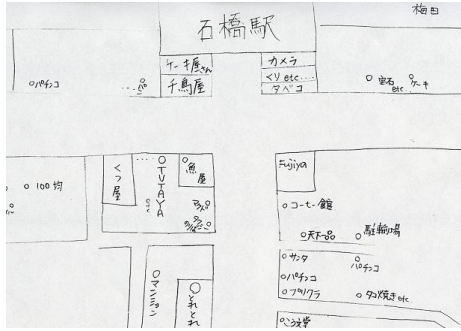 石橋駅
梅田
ケーキ屋さん
千鳥屋
カメラ
くり etc....
タバコ
パチンコ
宝石 etc
ケーキ
100均
くつ屋
TUTAYA
魚屋
Fujiya
コーヒー館
天下一品
駐輪場
サンタ
パチンコ
パチンコ
プリクラ
タコ焼き etc
マンション
とれとれ